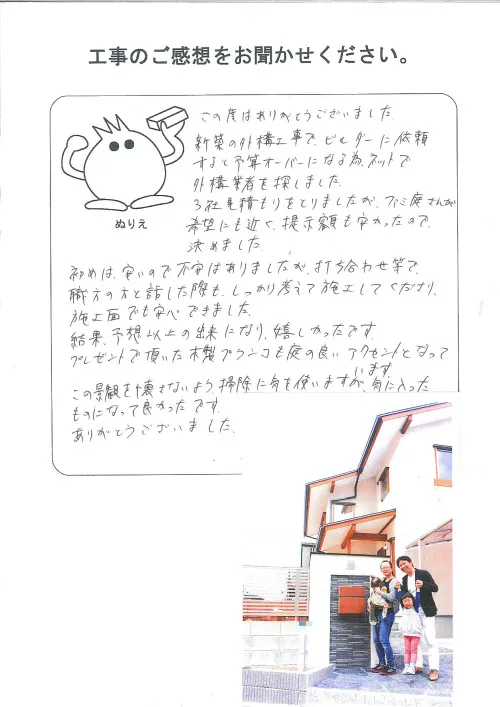 工事のご感想をお聞かせください。
ぬりえ
この度はありがとうございました。
新築の外構工事で、ビルダーに依頼
すると予算オーバーになる為、ネットで
外構業者を探しました。
3社見積もりをとりましたが、ファミ庭さんが
希望にも近く、提示額も安かったので、
決めました。
初めは、安いので不安はありましたが、打ち合わせ等で、
職方の方と話した際も、しっかり考えて施工してくださり、
施工面でも安心できました。
結果、予想以上の出来になり、嬉しかったです。
プレゼントで頂いた木製プランコも庭の良いアクセントとなって
います。
この景観を壊さないよう掃除に気を使いますが、気に入った
ものになって良かったです。
ありがとうございました。